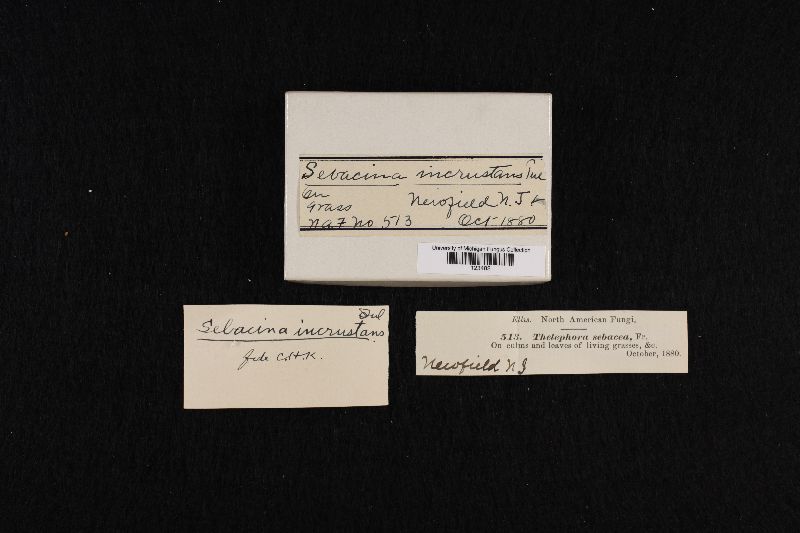 Sebacina incrustans Tul
on
Grass Newfield N.J
N.A.F No 513 Oct-1880
University of Michigan Fungus Collection
Tul
Sebacina incrustans
fide
Ellis. North American Fungi,
513. Thelephora sebacea, Fr.
On culms and leaves of living grasses, &c.
October, 1880.
Newfield N J